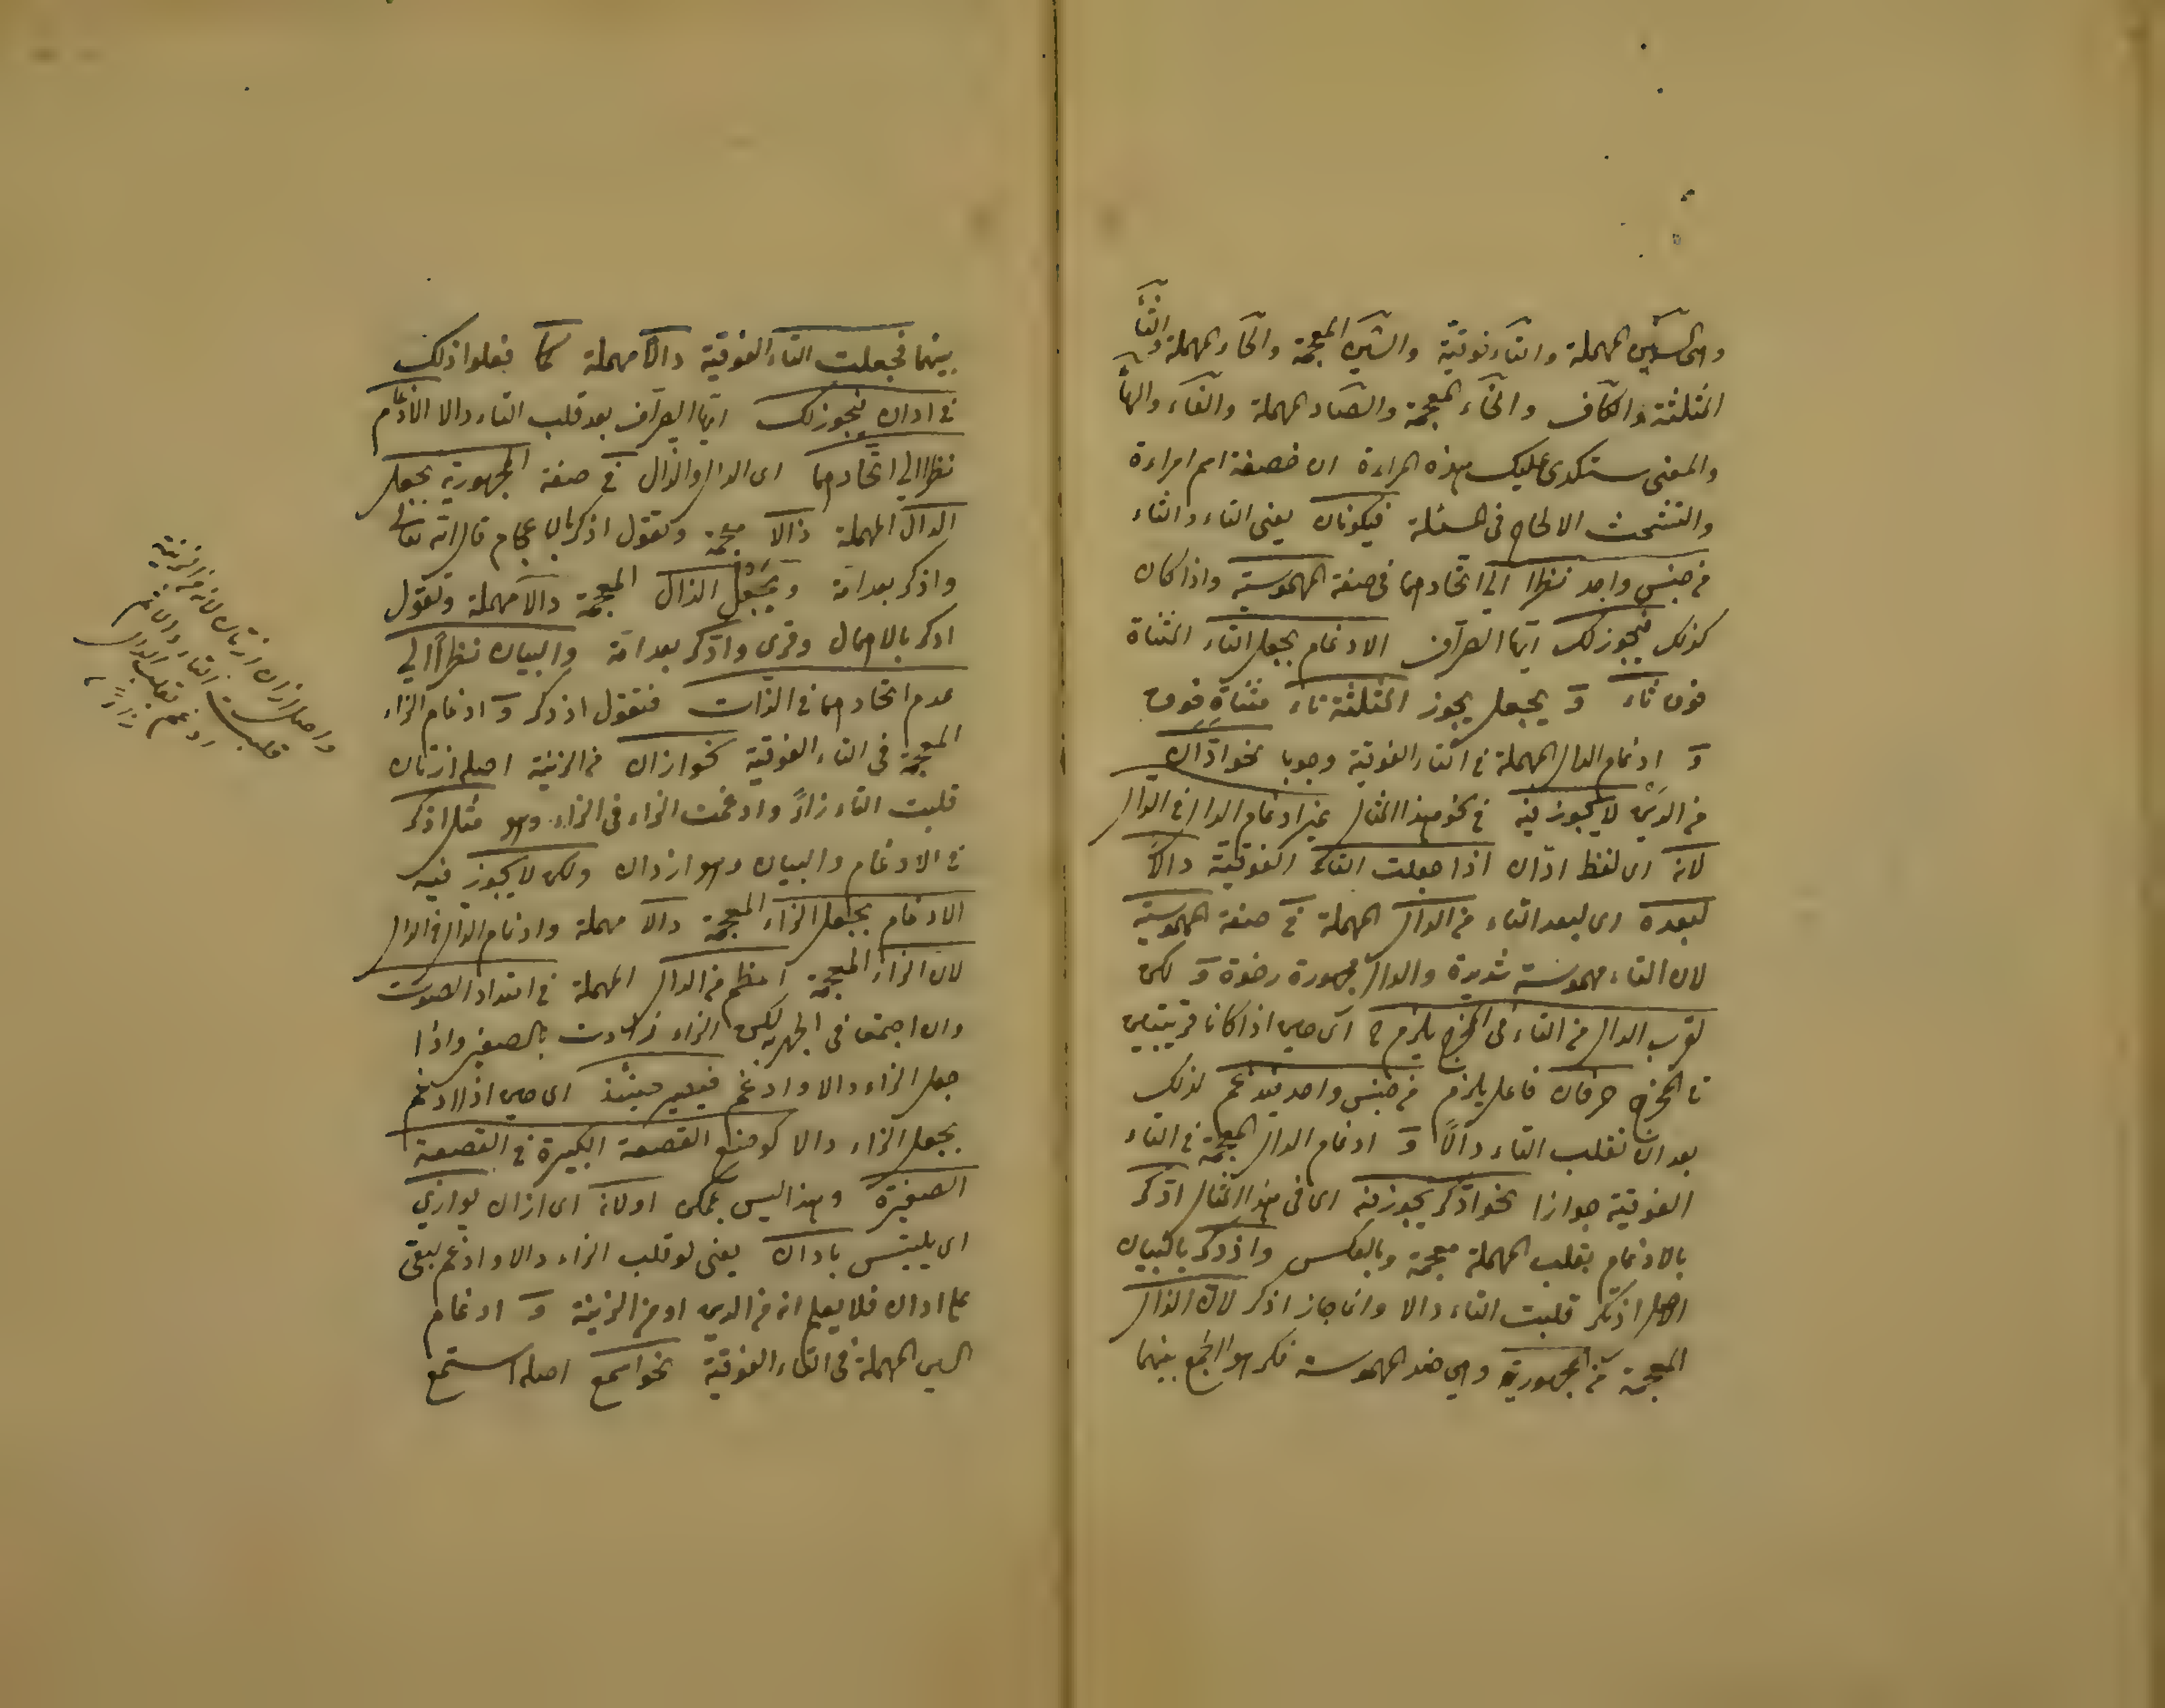 وهى السين المهملة والتاء فوقية والشين المعجمة والحاء المهملة والثاء
المثلثة والكاف والخاء المعجمة والصاد المهملة والفاء والهاء
والمعنى ستكدى عليك هذه المراءة ان خصفة اسم امراءة
والتشحث الالحاح فى المسئلة فيكونان يعنى التاء والثاء
من جنس واحد نظرا الى اتحادهما فى صفة المهموسية واذا كان
كذلك فيجوز لك ايها الصراف الادغام بجعل التاء المثناة
فوق ثاء و يجعل يجوز المثلثة تاء مثناة فوق
و ادغام الدال المهملة فى التاء الفوقية وجوبا نحو ادّان
من الدين لا يجوز فيه فى نحو هذا المثال غير ادغام الدال فى الدال
لانه اى لفظ ادّان اذا جعلت التاء الفوقية دالاً
لبعده اى لبعد التاء من الدال المهملة فى صفة المهموسية
لان التاء مهموسة شديدة والدال مجهورة رخوة و لكن
لقرب الدال من التاء فى المخرج يلزم ح اى حين اذا كانا قريبتين
فى المخرج حرفان فاعل يلزم من جنس واحد فيدغم لذلك
بعد ان تقلب التاء دالاً و ادغام الدال المعجمة فى التاء
الفوقية جوازا نحو اذّكر يجوز فيه اى فى هذا المثال اذّكر
بالادغام بقلب المهملة معجمة وبالعكس واذدكر بالبيان
الاصل اذتكر قلبت التاء دالا وانما جاز اذكر لان الذال
المعجمة من المجهورية وهى ضد المهموسة فكرهوا الجمع بينهما
بينهما فجعلت التاء الفوقية دالا مهملة كما فعلوا ذلك
فى ادان فيجوز لك ايها الصراف بعد قلب التاء دالا الادغام
نظرا الى اتحادهما اى الدال والذال فى صفة المجهورية بجعل
الدال المهملة ذالا معجمة وتقول اذكر بالاعجام قال الله تعالى
واذكر بعد امة ويجعل الذال المعجمة دالا مهملة وتقول
ادكر بالاهمال وقرئ وادّكر بعد امّة والبيان نظراً الى
عدم اتحادهما فى الذات فتقول اذدكر و ادغام الزاء
المعجمة فى التاء الفوقية نحو ازان من الزينة اصله ازتان
قلبت التاء زاءً وادغمت الزاء فى الزاء وهو مثل اذكر
فى الادغام والبيان وهو ازدان ولكن لا يجوز فيه
الادغام بجعل الزاء المعجمة دالا مهملة وادغام الدال فى الدال
لان الزاء المعجمة اعظم من الدال المهملة فى امتداد الصوت
وان اجتمعا فى الجهرية لكن الزاء زادت بالصفير واذا
جعل الزاء دالا وادغم فيصير حينئذ اى حين اذ الادغم
بجعل الزاء دالا كوضع القصعة الكبيرة فى القصعة
الصغيرة وهذا ليس بممكن او لانه اى ازان يوازى
اى يلتبس بادان يعنى لو قلب الزاء دالا وادغم لبقى
على ادان فلا يعلم انه من الدين او من الزينة و ادغام
السين المهملة فى التاء الفوقية نحو اسمع اصله استمع
واصل ازان ازتان لانه من الزينة
قلبت التاء